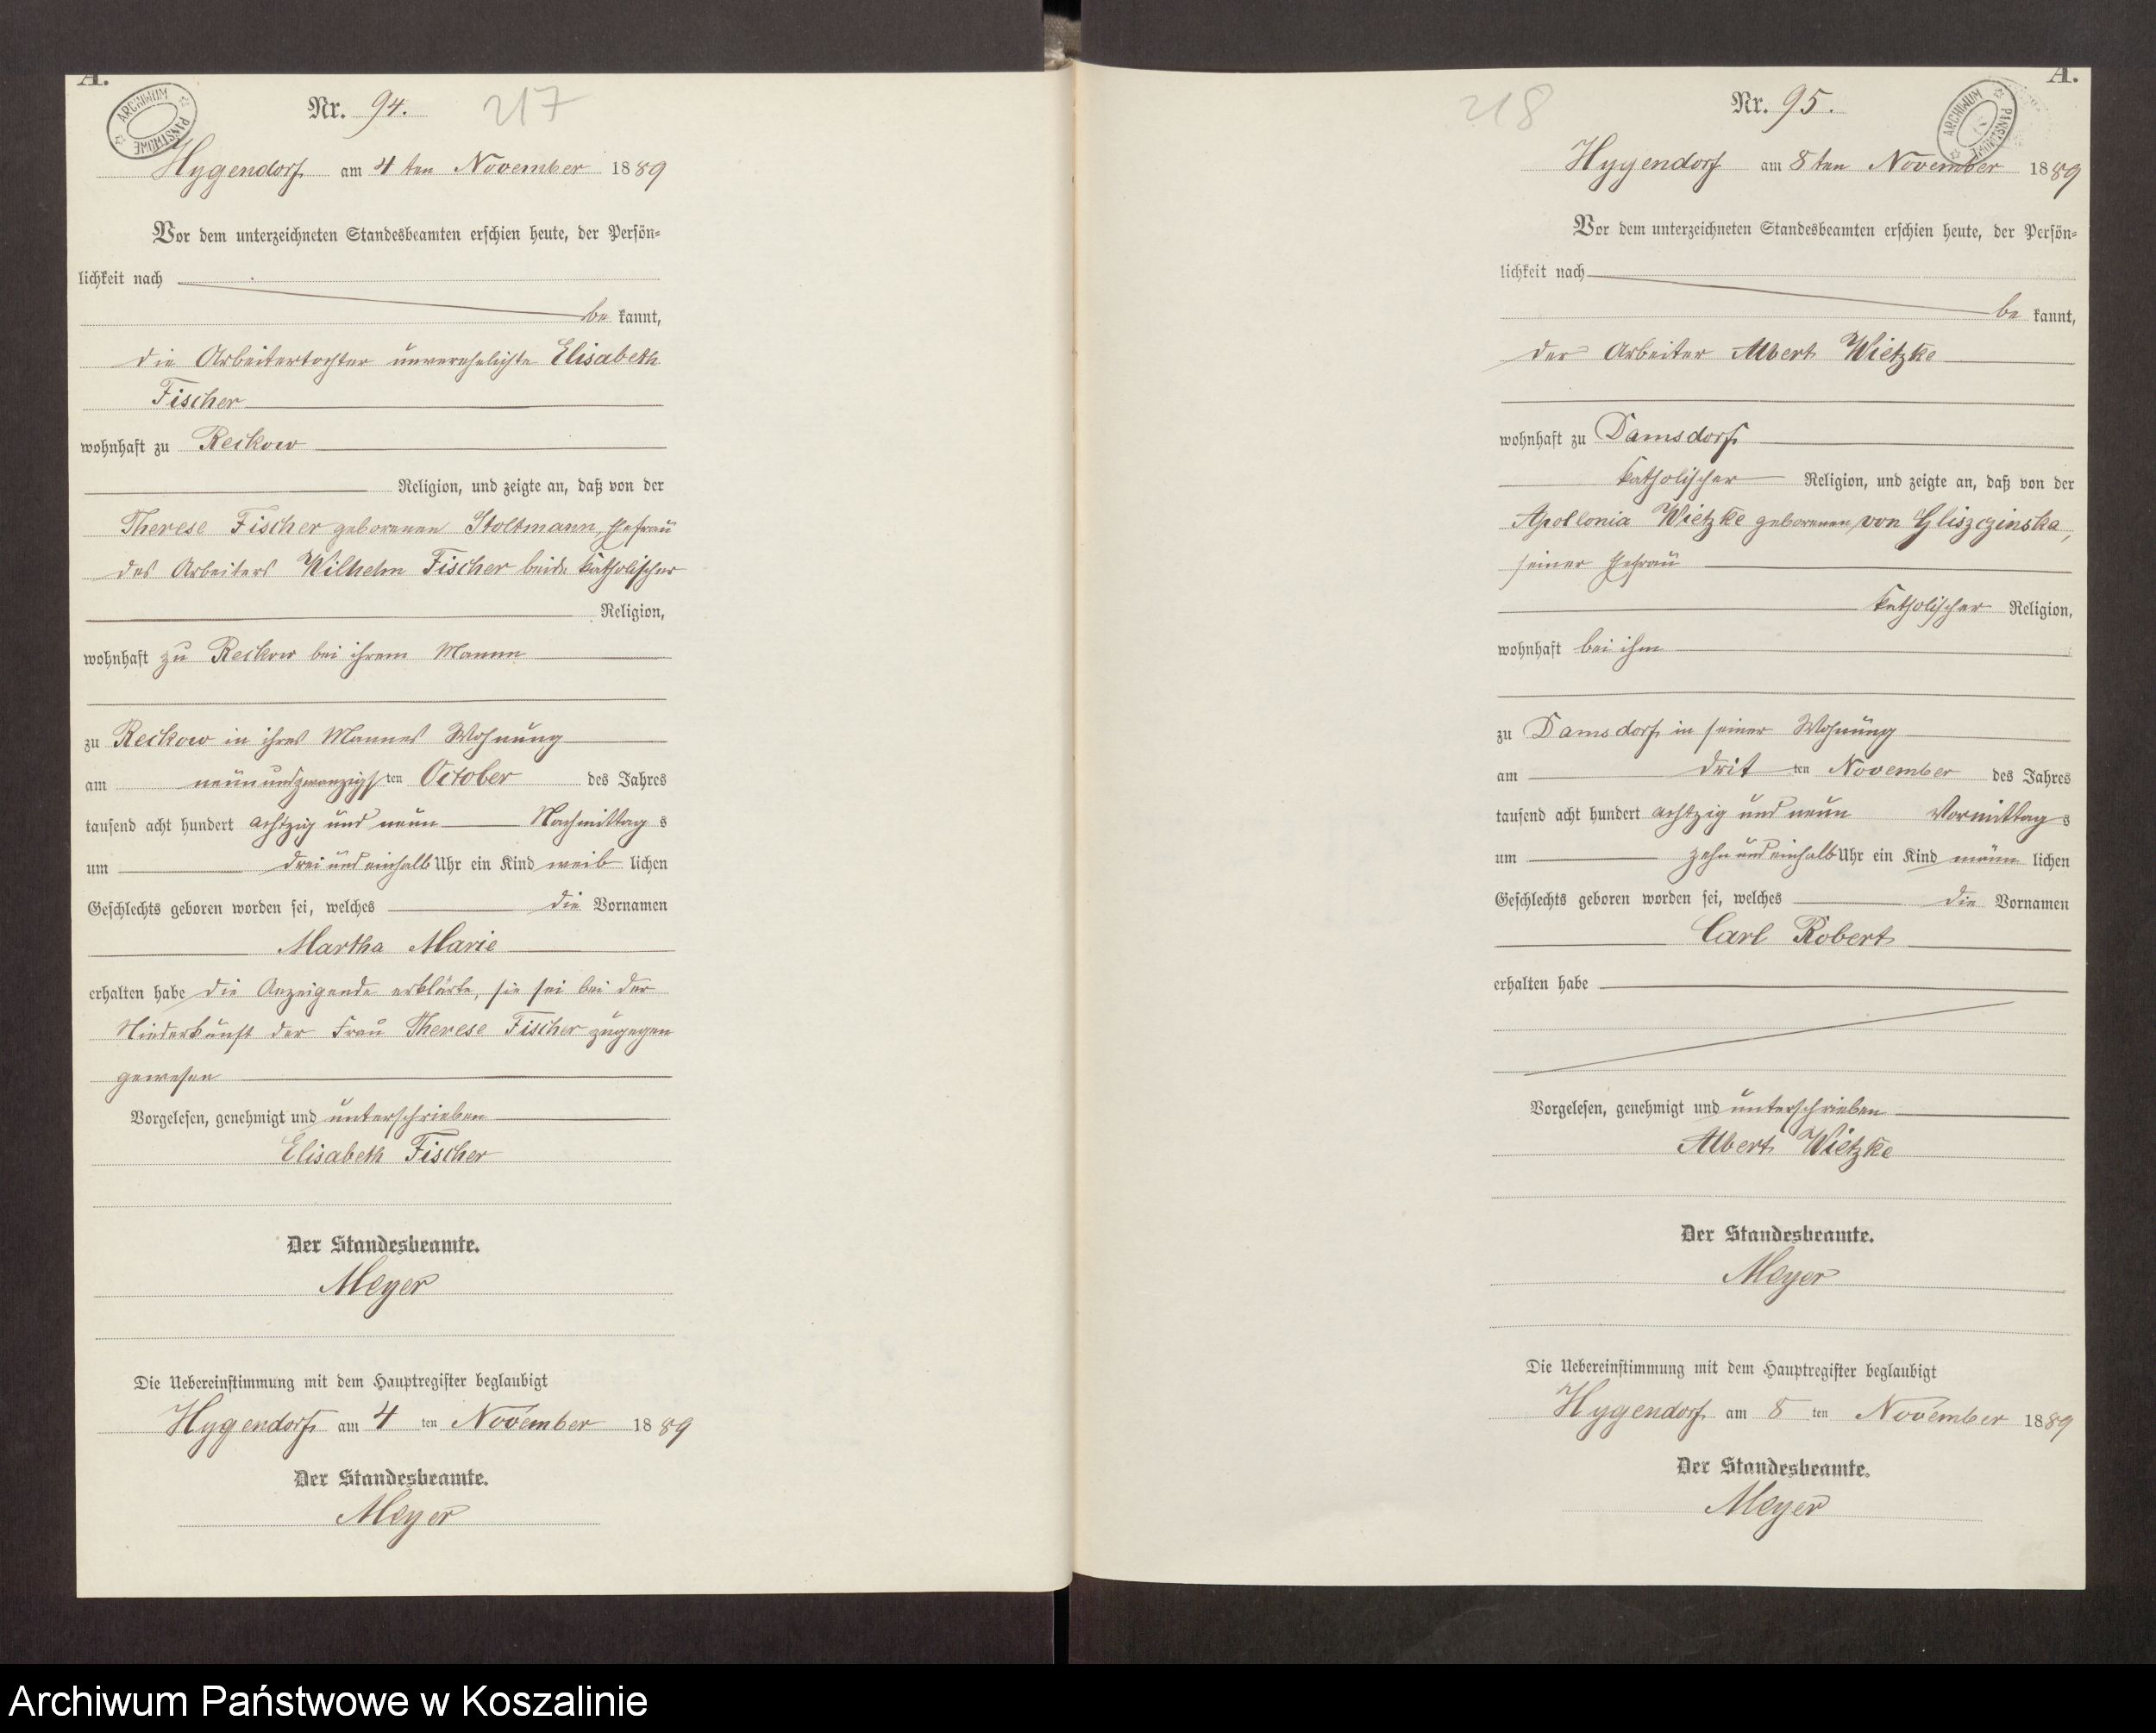 A.
ARCHIWUM PAŃSTWOWE
Nr. 94. 217
Hygendorf am 4 ten November 1889
Vor dem unterzeichneten Standesbeamten erschien heute, der Persön-
lichkeit nach
be kannt,
die Arbeitertochter unverehelichte Elisabeth
Fischer
wohnhaft zu Reckow
Religion, und zeigte an, daß von der
Therese Fischer geborenen Stoltmann, Ehefrau
des Arbeiters Wilhelm Fischer beide katholischer
Religion,
wohnhaft zu Reckow bei ihrem Mann
zu Reckow in ihres Mannes Wohnung
am neunundzwanzigsten October des Jahres
tausend acht hundert achtzig und neun Nachmittags
um drei und einhalb Uhr ein Kind weiblichen
Geschlechts geboren worden sei, welches die Vornamen
Martha Marie
erhalten habe die Anzeigende erklärte, sie sei bei der
Niederkunft der Frau Therese Fischer zugegen
gewesen
Vorgelesen, genehmigt und unterschrieben
Elisabeth Fischer
Der Standesbeamte.
Meyer
Die Uebereinstimmung mit dem Hauptregister beglaubigt
Hygendorf am 4 ten November 1889
Der Standesbeamte.
Meyer
A.
ARCHIWUM PAŃSTWOWE
218 Nr. 95.
Hygendorf am 8 ten November 1889
Vor dem unterzeichneten Standesbeamten erschien heute, der Persön-
lichkeit nach
be kannt,
der Arbeiter Albert Wietzke
wohnhaft zu Damsdorf
katholischer Religion, und zeigte an, daß von der
Apollonia Wietzke geborenen von Gliszczinska,
seiner Ehefrau
katholischer Religion,
wohnhaft bei ihm
zu Damsdorf in seiner Wohnung
am dritten November des Jahres
tausend acht hundert achtzig und neun Vormittags
um zehn und einhalb Uhr ein Kind männlichen
Geschlechts geboren worden sei, welches die Vornamen
Carl Robert
erhalten habe
Vorgelesen, genehmigt und unterschrieben
Albert Wietzke
Der Standesbeamte.
Meyer
Die Uebereinstimmung mit dem Hauptregister beglaubigt
Hygendorf am 8 ten November 1889
Der Standesbeamte.
Meyer
Archiwum Państwowe w Koszalinie